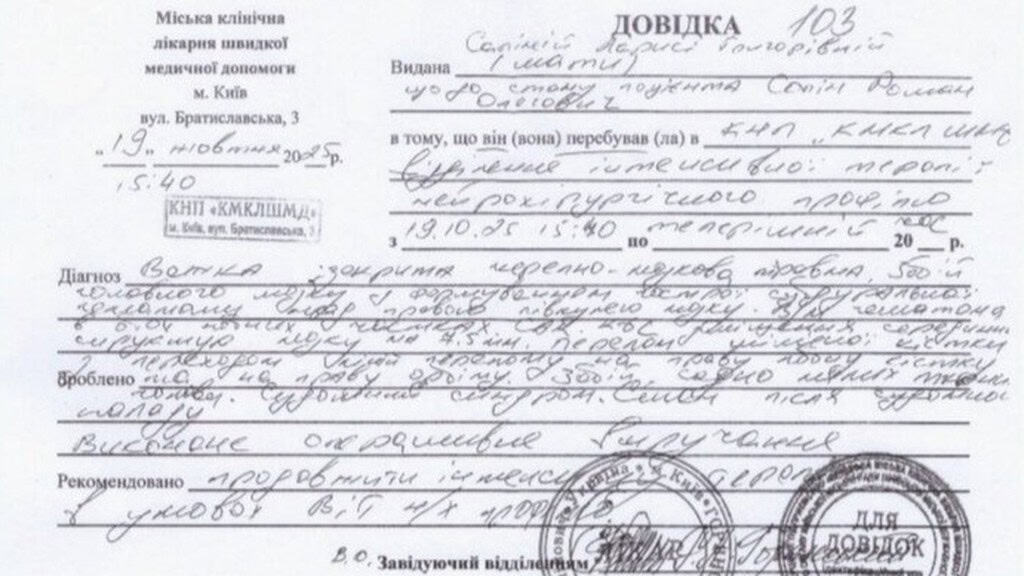 Міська клінічна
лікарня швидкої
медичної допомоги
м. Київ
вул. Братиславська, 3
„19„ жовтня 2025р.
15:40
КНП «КМКЛШМД»
м. Київ, вул. Братиславська, 3
ДОВІДКА 103
Саліній Ларисі Григорівній
Видана (мати)
щодо стану пацієнта Салін Роман
Олегович
в тому, що він (вона) перебував (ла) в КНП „КМКЛШМД
відділення інтенсивної терапії
нейрохірургічного профілю
з 19.10.25 15:40 по теперішній час 20 р.
Діагноз Важка закрита черепно-мозкова травма. Забій
головного мозку з формуванням гострої субдуральної
гематоми над правою півкулею мозку.
зміщення серединних
структур мозку на 7.5 мм. Перелом кістки
з переходом лінії перелому на праву лобну кістку
Зроблено та на праву орбіту. Забій, садно мяких тканин
голови. Судомний синдром. Стан після судомного
нападу
Виконане оперативне втручання
Рекомендовано продовжити інтенсивну терапію
в умовах ВІТ н/х профілю
В.О. Завідуючий відділенням
Україна * м. Київ
ЛІКАР
ДЛЯ
ДОВІДОК